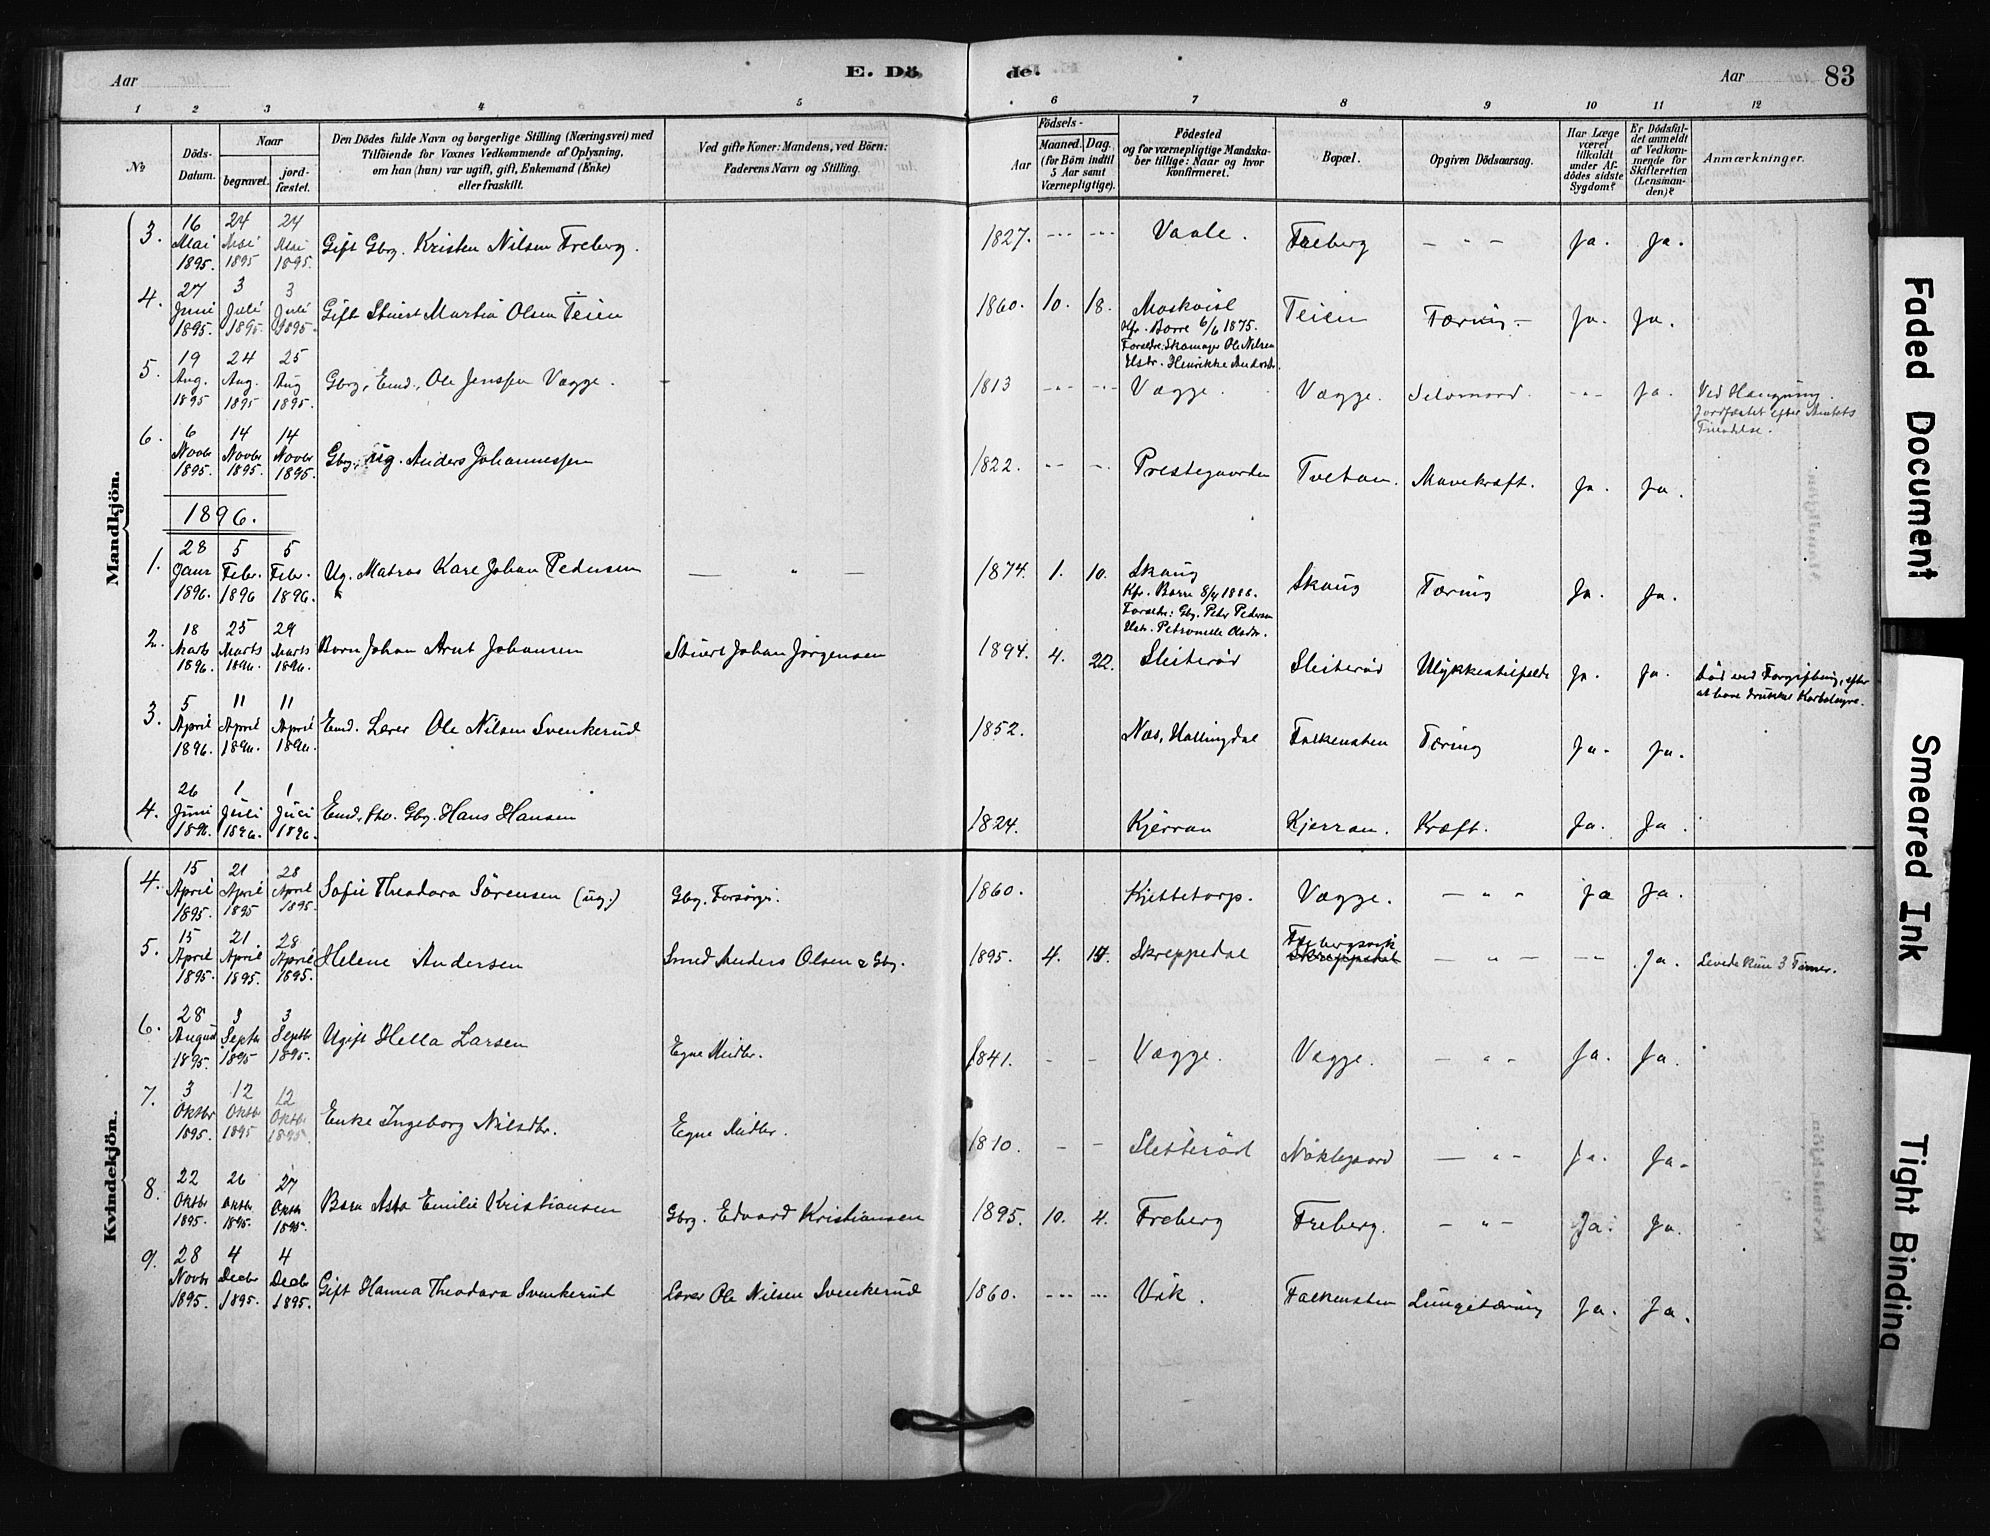 Aar E. Dö de. Aar 83
1 2 3 4 5 6 7 8 9 10 11 12
№ Döds-Datum. Naar begravet. jordfæstet. Den Dödes fulde Navn og borgerlige Stilling (Næringsvei) med Tilföiende for Voxnes Vedkommende af Oplysning, om han (hun) var ugift, gift, Enkemand (Enke) eller fraskilt. Ved gifte Koner: Mandens, ved Börn: Faderens Navn og Stilling. Aar Födsels- Maaned. Dag. (for Börn indtil 5 Aar samt Værnepligtige). Födested og for værnepligtige Mandskaber tillige: Naar og hvor konfirmeret. Bopæl. Opgiven Dödsaarsag. Har Læge været tilkaldt under Afdödes sidste Sygdom? Er Dödsfaldet anmeldt af Vedkommende for Skifteretten (Lensmanden)? Anmærkninger.
Mandkjön.
3. 16 Mai 1895. 24 Mai 1895 24 Mai 1895. Gift Gbrg. Kristen Nilsen Freberg. 1827. Vaale. Freberg — " — Ja. Ja.
4. 27 Juni 1895. 3 Juli 1895. 3 Juli 1895. Gift Stuert Martin Olsen Teien 1860. 10. 18. Moskvist Kfr. Borre 6/6 1875. Forældre: Skomager Ole Nilsen Hstr. Henrikke Andersdr. Teien Tæring — Ja. Ja.
5. 19 Aug. 1895 24 Aug. 1895 25 Aug 1895. Gbrg. Emd. Ole Jenssen Vægge. 1813 Vægge. Vægge. Selvmord. -"- Ja. Ved Hængning. Jordfæstet efter Amtets Tilladelse.
6. 6 Novbr 1895. 14 Novbr 1895. 14 Novbr 1895. Gbrg. ug. Anders Johannessen 1822. Prestegaarden Tvetan. Mavekræft. Ja. Ja.
1896.
1. 28 Janr 1896. 5 Febr. 1896 5 Febr. 1896. Ug. Matros Karl Johan Pedersen — " — 1874. 1. 10. Skoug Kfr. Borre 8/4 1888. Forældre: Gbrg. Peter Pedersen Hstr. Petronelle Olsdr. Skoug Tæring Ja. Ja.
2. 18 Marts 1896. 25 Marts 1896. 29 Marts 1896. Barn Johan Arnt Johansen Stuert Johan Jørgensen 1894. 4. 22. Sletterød Sletterød Ulykkestilfælde Ja. Ja. Død ved Forgiftning, efter at have drukket Karbolsyre.
3. 5 April 1896. 11 April 1896. 11 April 1896. Emd. Lærer Ole Nilsen Svenkerud 1852. Næs, Hallingdal Falkensten Tæring Ja. Ja.
4. 26 Juni 1896. 1 Juli 1896. 1 Juli 1896. Emd. fhv. Gbrg. Hans Hansen 1824. Kjerran Kjerran. Kræft. Ja. Ja.
Kvindekjön.
4. 15 April 1895. 21 April 1895 28 April 1895. Sofie Theodora Sørensen (ug.) Gbrg. Forsørge. 1860. Kjettetorp. Vægge. — " — Ja Ja.
5. 15 April 1895. 21 April 1895. 28 April 1895. Helene Andersen Smed Anders Olsen & Gbrg. 1895. 4. 15. Skreppedal Frebergsvik Skreppedal — " — -"- Ja. Levede kun 3 Timer.
6. 28 August 1895. 3 Septbr 1895 3 Septbr 1895. Ugift Hella Larsen Egne Midler. 1841. - - Vægge. Vægge. — " — Ja. Ja.
7. 3 Oktbr 1895. 12 Oktbr 1895 12 Oktbr 1895. Enke Ingeborg Nilsdtr. Egne Midler. 1810. - - Sletterød Nøklegaard — " — Ja. Ja.
8. 22 Oktbr 1895. 26 Oktbr 1895. 27 Oktbr 1895. Barn Asta Emilie Kristiansen Gbrg. Edvard Kristiansen 1895. 10. 4. Freberg Freberg. — " — Ja. Ja.
9. 28 Novbr 1895. 4 Decbr 1895. 4 Decbr 1895. Gift Hanna Theodora Svenkerud Lærer Ole Nilsen Svenkerud 1860. Vik. Falkensten Lungetæring Ja. Ja.
Faded Document
Smeared Ink
Tight Binding